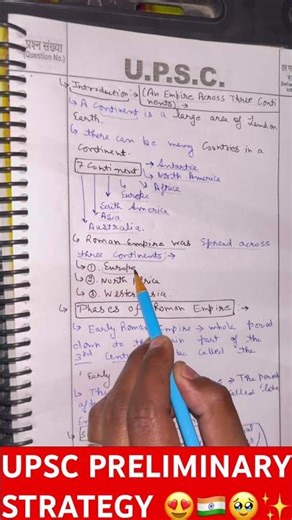 प्रश्न संख्या
(Question No.)
U.P.S.C.
Introduction :→ (An Empire Across Three Conti
nents) :→
→ A Continent is a large area of Land on
Earth.
→ there can be many Countries in a
Continent.
7 Continent → Antartica
→ North America
→ Africa
Europe
South America
Asia
Australia.
→ Roman Empire was spread across
three Continents :→
→ ① Europe
→ ② North
→ ③ Western
→ Phases of Roman Empire
→ Early Roman Empire → whole
down to the part of the
3rd called the
Early
→ The
UPSC PRELIMINARY
STRATEGY 😍🇮🇳🥹✨